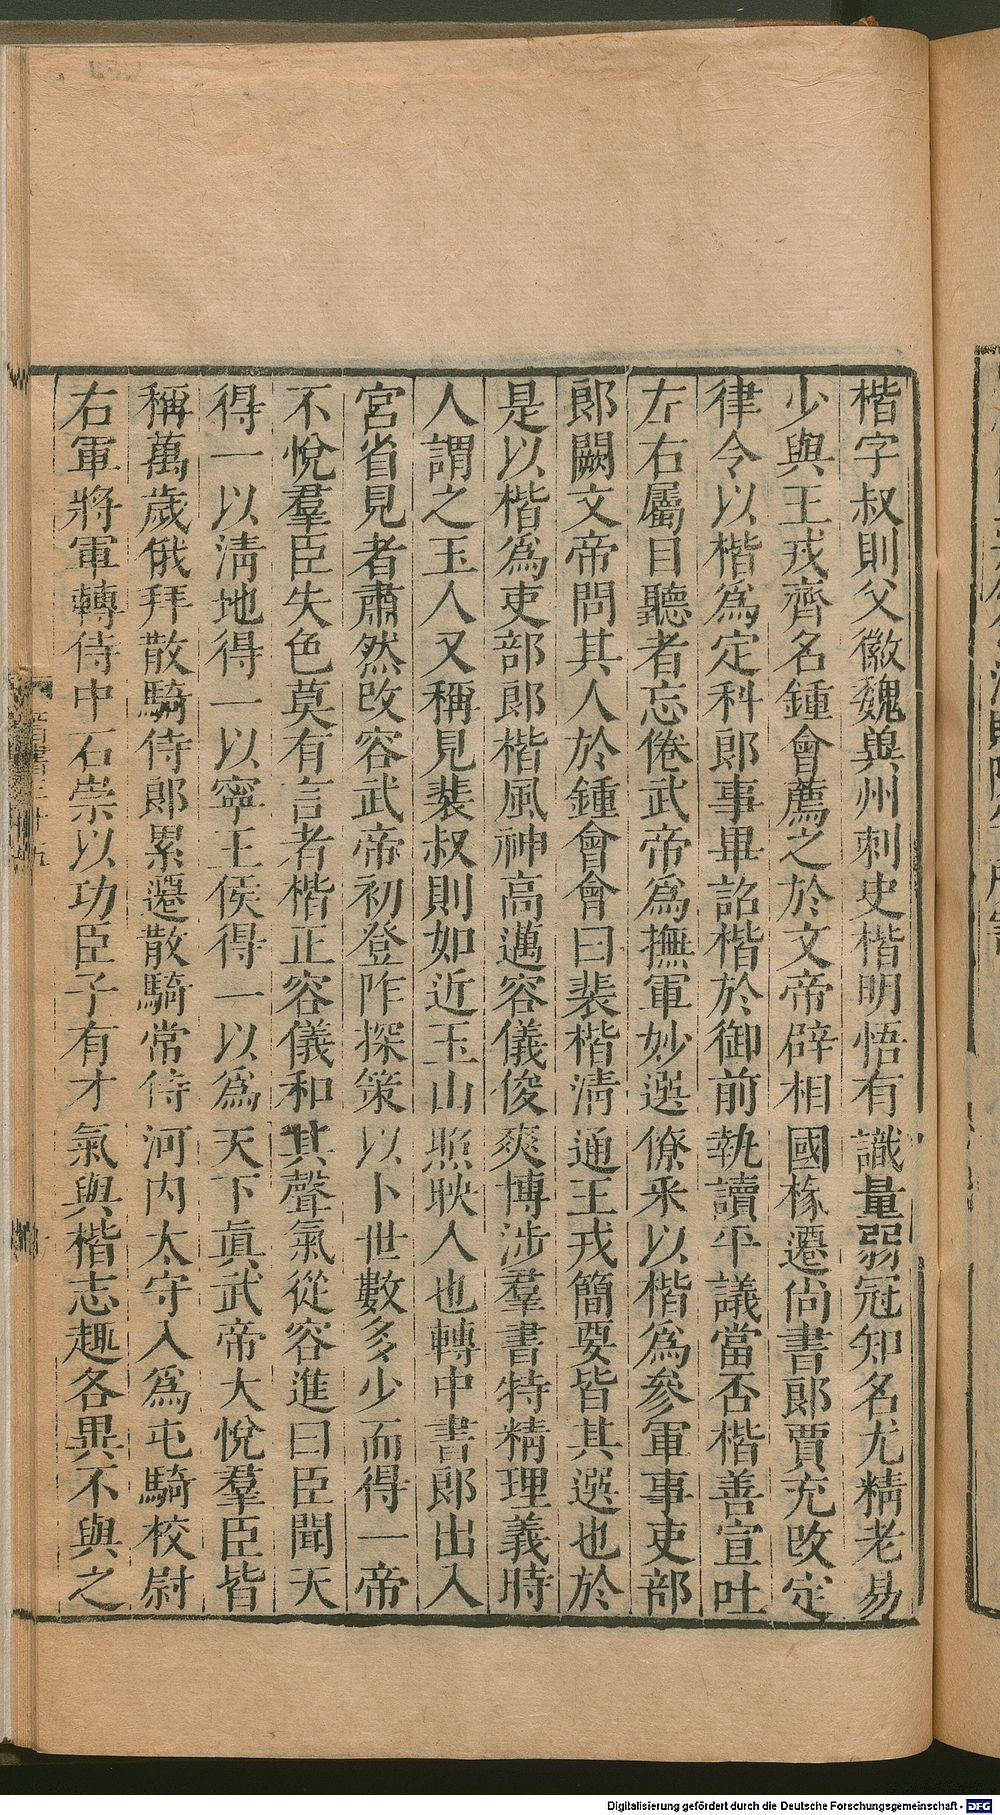 楷字叔則父徽魏兾州刺史楷明悟有識量弱冠知名尤精老易
少與王戎齊名鍾會薦之於文帝辟相國掾遷尙書郎賈充改定
律令以楷爲定科郎事畢詔楷於御前執讀平議當否楷善宣吐
左右屬目聽者忘倦武帝爲撫軍妙選僚釆以楷爲參軍事吏部
郎闕文帝問其人於鍾會會曰裴楷淸通王戎簡要皆其選也於
是以楷爲吏部郎楷風神高邁容儀俊爽博涉羣書特精理義時
人謂之玉人又稱見裴叔則如近玉山照映人也轉中書郎出入
宮省見者肅然改容武帝初登阼探策以卜世數多少而得一帝
不悅羣臣失色莫有言者楷正容儀和其聲氣從容進曰臣聞天
得一以淸地得一以寧王侯得一以爲天下眞武帝大悅羣臣皆
稱萬歲俄拜散騎侍郎累遷散騎常侍河內太守入爲屯騎校尉
右軍將軍轉侍中石崇以功臣子有才氣與楷志趣各異不與之
晉書三十五
Digitalisierung gefördert durch die Deutsche Forschungsgemeinschaft - DFG